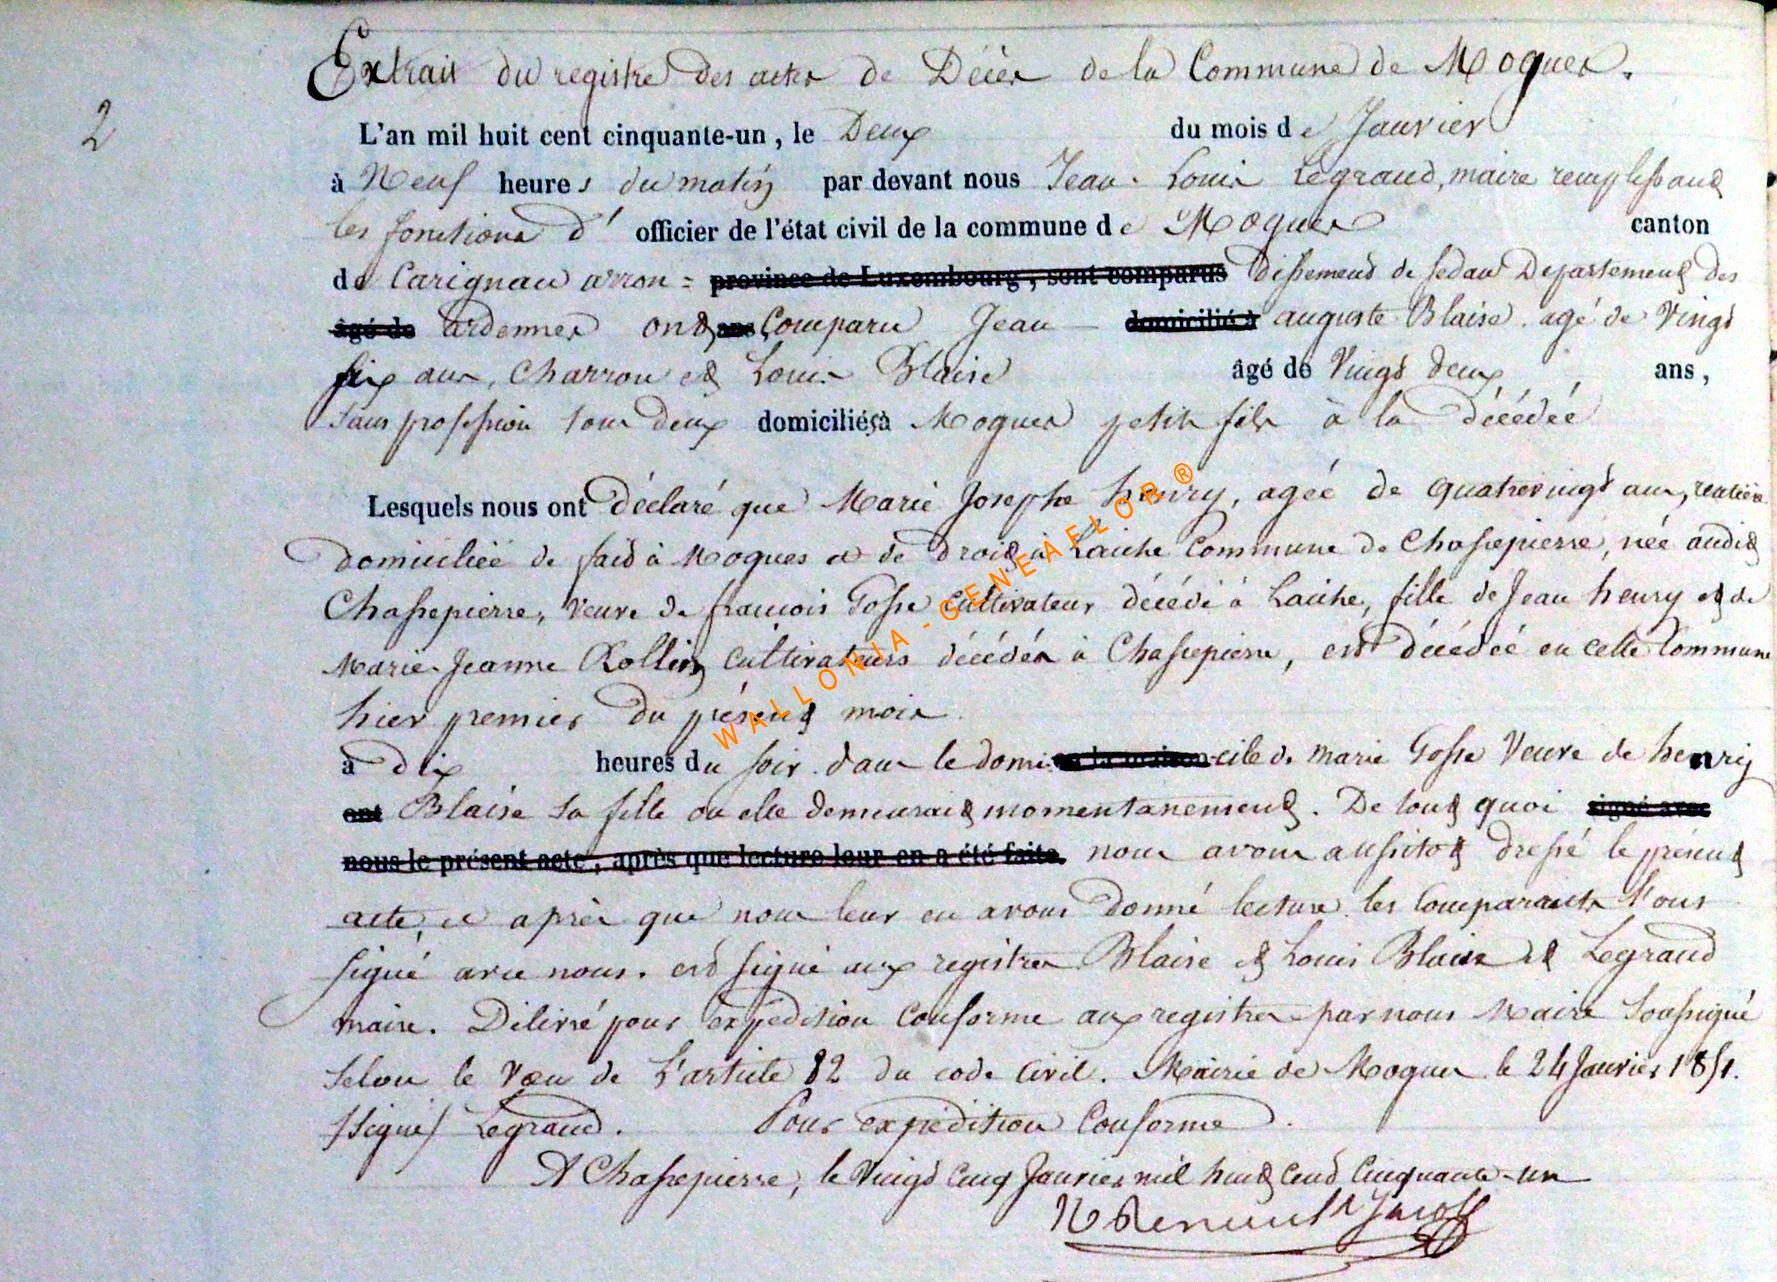 Extrait du registre des actes de Décès de la Commune de Mogues.
2
L'an mil huit cent cinquante-un, le Deux du mois de Janvier
à Neuf heures du matin par devant nous Jean-Louis Legrand, maire remplissant
les fonctions d'officier de l'état civil de la commune de Mogues canton
de Carignan arron= province de Luxembourg, sont comparus dissement de Sedan Departement des
âgé de ardennes ont ans Comparu Jean domicilié à auguste Blaise. agé de Vingt
six ans, Charron et Louis Blaise âgé de Vingt deux ans,
sans profession tous deux domiciliés à Mogues petits fils à la décédéé
Lesquels nous ont déclaré que Marie Josephe henry, agéé de quatrevingt ans, rentière
domiciliéé de fait à Mogues et de droit à Laiche Commune de Chassepierre, née audit
Chassepierre, Veuve de francois Gosse cultivateur décédé à Laiche, fille de Jean henry et de
Marie-Jeanne Rollin cultivateurs décédés à Chassepierre, est décédéé en cette Commune
hier premier du présent mois.
à dix heures du soir dans le domi- en la maison -cile de Marie Gosse Veuve de henry
ont Blaise sa fille ou elle demeurait momentanement. De tout quoi signé avec
nous le présent acte, après que lecture leur en a été faite. nous avons aussitot dressé le présent
acte, et après que nous leur en avons donné lecture les Comparants l'ont
signé avec nous. est signé aux registres Blaise et Louis Blaise et Legrand
maire. Délivré pour expedition Conforme aux registres par nous Maire Soussigné
selon le Vœu de l'article 82 du code Civil. Mairie de Mogues le 24 Janvier 1851.
/signé/ Legrand. Pour expédition Conforme.
A Chassepierre, le Vingt Cinq Janvier mil huit Cent Cinquante-un
WALLONIA - GENEAFLOB ®